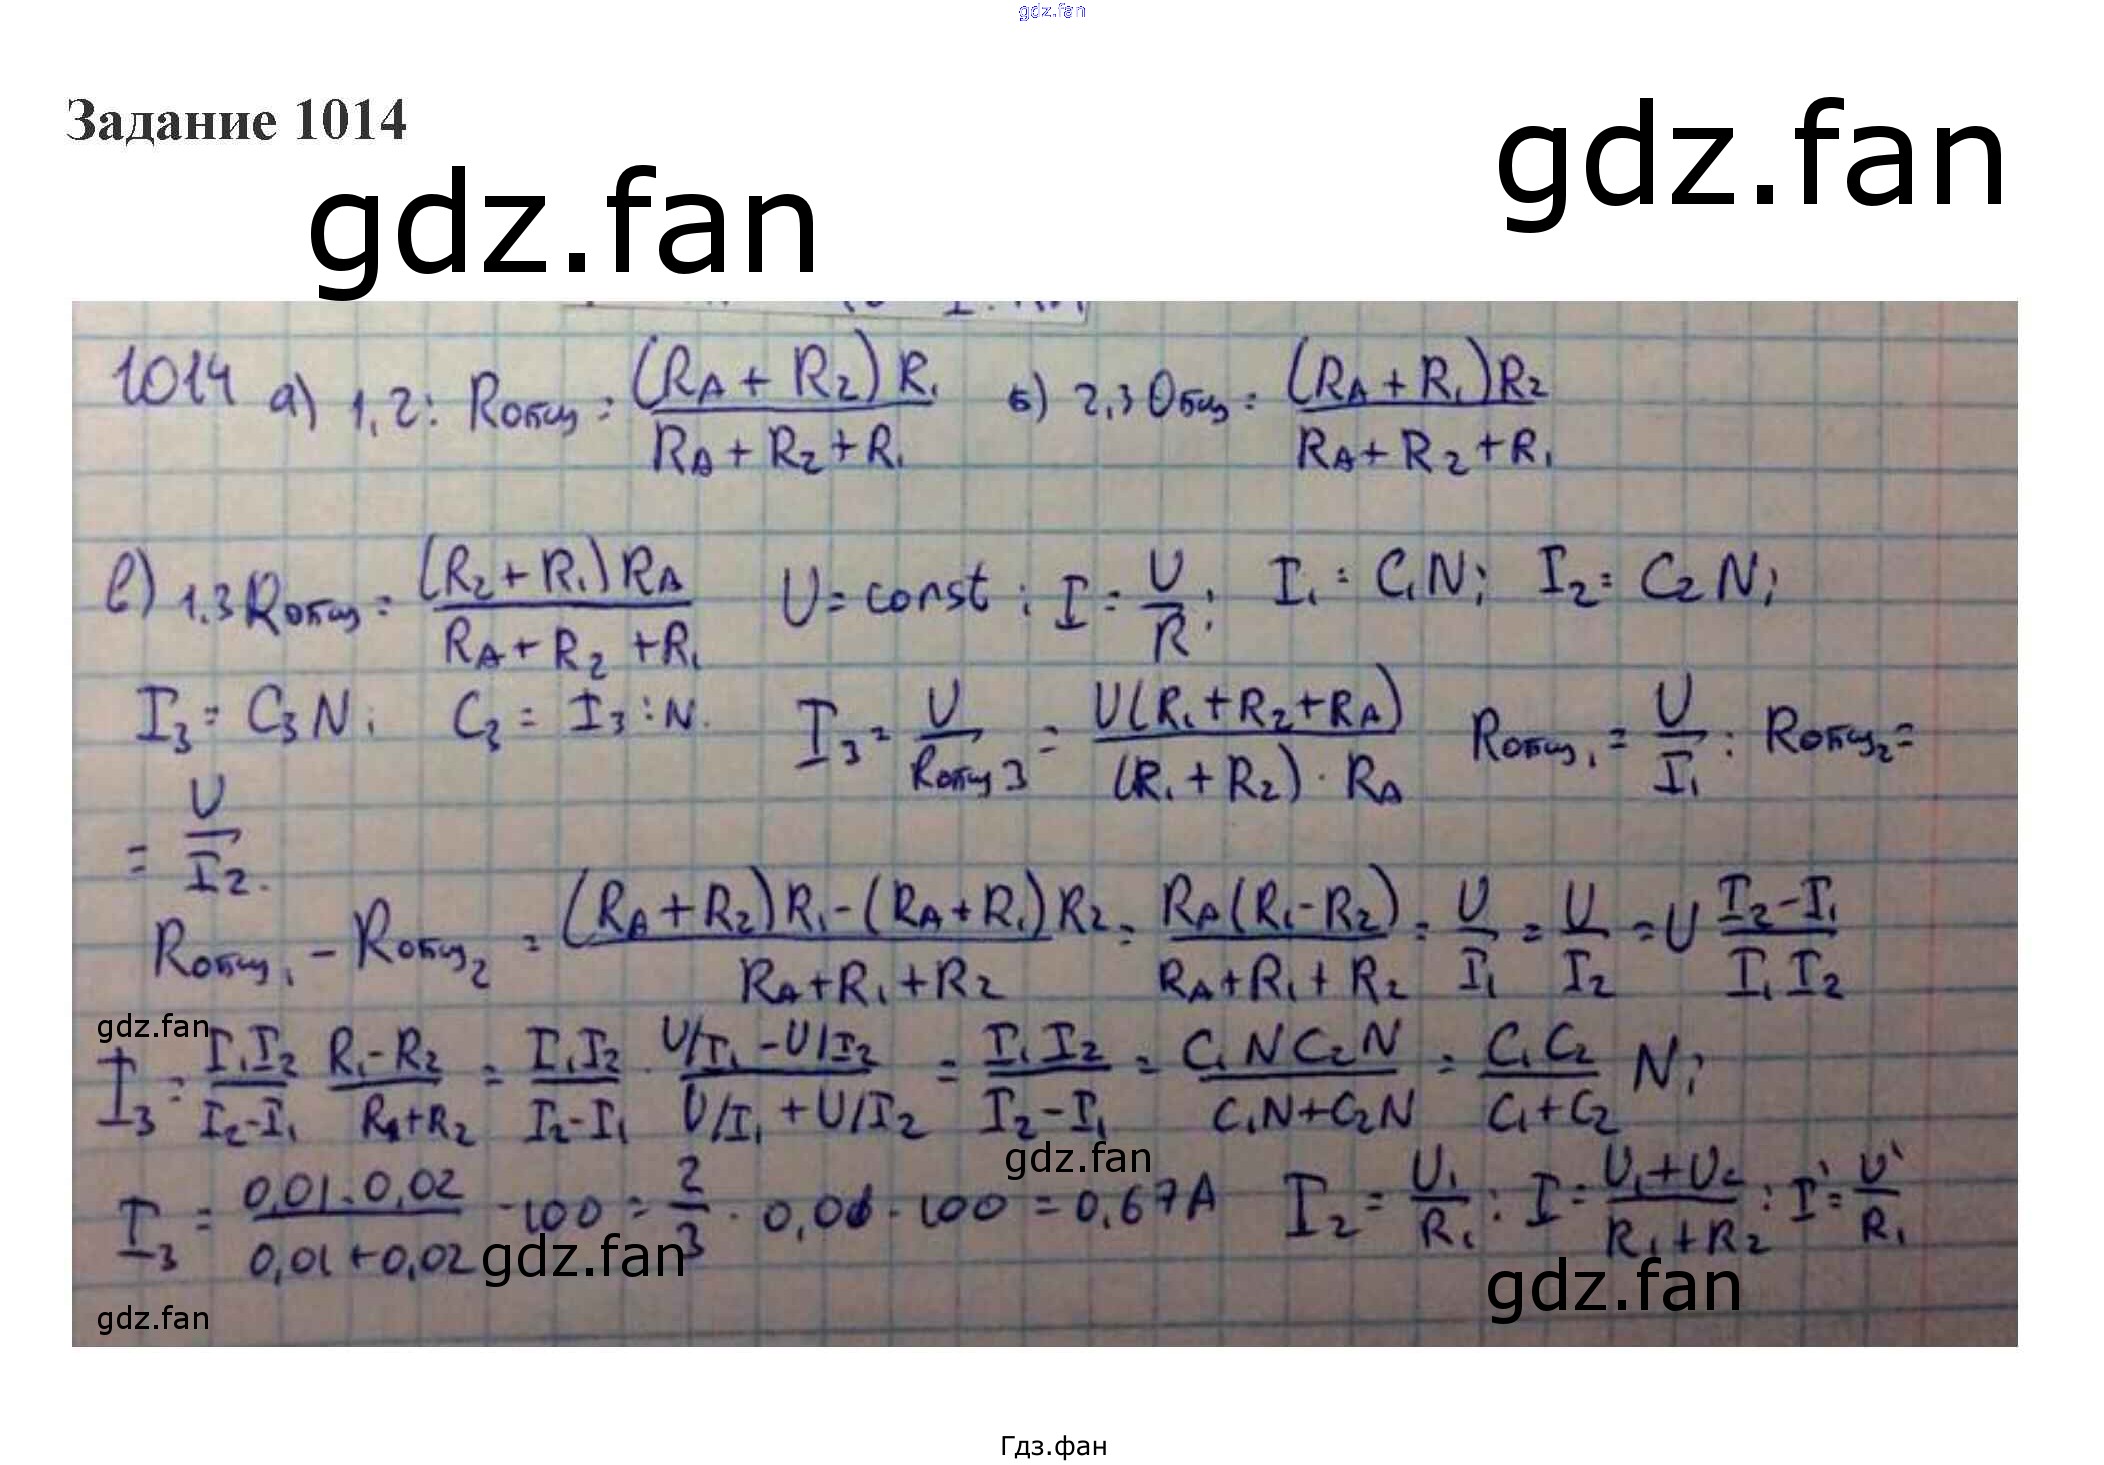 gdz.fan
Задание 1014
gdz.fan
gdz.fan
1014 а) 1,2: Rобщ = (RA + R2) R1 / (RA + R2 + R1) б) 2,3 Oбщ = (RA + R1) R2 / (RA + R2 + R1)
в) 1.3 Rобщ = (R2 + R1) RA / (RA + R2 + R1) U = const ; I = U/R ; I1 = C1N; I2 = C2N;
I3 = C3N; C3 = I3 : N. I3 = U / Rобщ3 = U(R1 + R2 + RA) / (R1 + R2) · RA Rобщ1 = U/I1 ; Rобщ2 =
= U/I2.
Rобщ1 - Rобщ2 = (RA + R2) R1 - (RA + R1) R2 / (RA + R1 + R2) = RA (R1 - R2) / (RA + R1 + R2) = U/I1 = U/I2 = U (I2 - I1) / (I1 I2)
gdz.fan
I3 = I1 I2 / (I2 - I1) (R1 - R2) / (R1 + R2) = I1 I2 / (I2 - I1) · (U/I1 - U/I2) / (U/I1 + U/I2) = I1 I2 / (I2 - I1) = C1 N C2 N / (C1N + C2N) = C1 C2 / (C1 + C2) N;
gdz.fan
I3 = 0,01 · 0,02 / (0,01 + 0,02) · 100 = 2/3 · 0,01 · 100 = 0,67 A I2 = U1/R1 ; I = (U1 + U2) / (R1 + R2) ; I' = U'/R1
gdz.fan
gdz.fan
gdz.fan
Гдз.фан